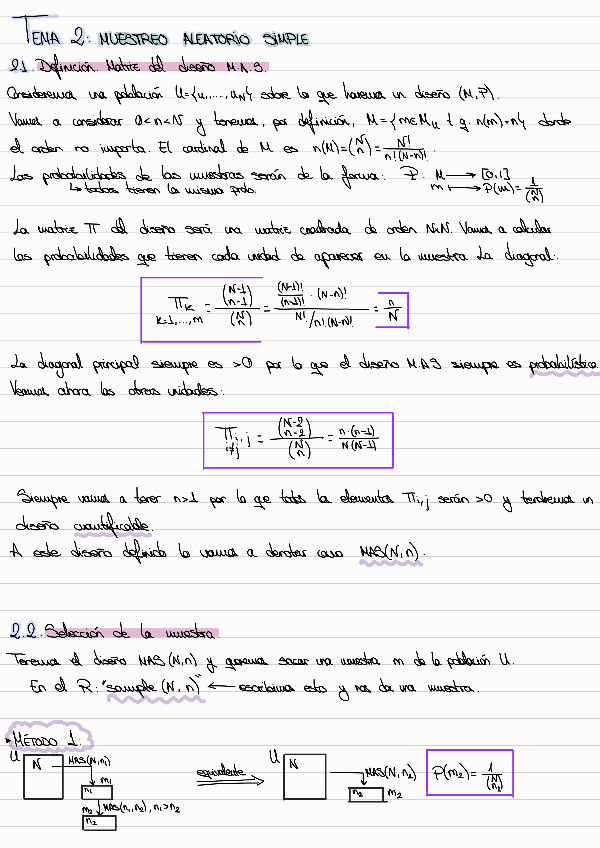 TEMA 2: MUESTREO ALEATORIO SIMPLE
2.1. Definición. Matriz del diseño M.A.S.
Consideremos una población U={u₁,...,u_N} sobre la que haremos un diseño (M,P).
Vamos a considerar 0<n<N y tenemos, por definición, M={m∈M_u t.q. n(m)=n} donde
el orden no importa. El cardinal de M es n(M)=(N n)=N!/n!(N-n)!.
Las probabilidades de las muestras serán de la forma: P: M → [0,1]
↳ todas tienen la misma prob. m ↦ P(m)=1/(N n)
La matriz Π del diseño será una matriz cuadrada de orden NxN. Vamos a calcular
las probabilidades que tienen cada unidad de aparecer en la muestra. La diagonal:
Π_k = (N-1 n-1)/(N n) = ((N-1)!/(n-1)! · (N-n)!)/(N!/n!·(N-n)!) = n/N
k=1,...,m
La diagonal principal siempre es >0 por lo que el diseño M.A.S siempre es probabilístico.
Veamos ahora las otras unidades:
Π_i,j = (N-2 n-2)/(N n) = n·(n-1)/N(N-1)
i≠j
Siempre vamos a tener n>1 por lo que todos los elementos Π_i,j serán >0 y tendremos un
diseño cuantificable.
A este diseño definido lo vamos a denotar como MAS(N,n).
2.2. Selección de la muestra
Tenemos el diseño MAS(N,n) y queremos sacar una muestra m de la población U.
En el R: "sample (N,n)" ← escribimos esto y nos da una muestra.
• MÉTODO 1:
U N MAS(N,n₁) m₁ n₁
m₂ MAS(n₁,n₂), n₁>n₂
n₂
equivalente
U N MAS(N,n₂) n₂ m₂
P(m₂)=1/(N n₂)